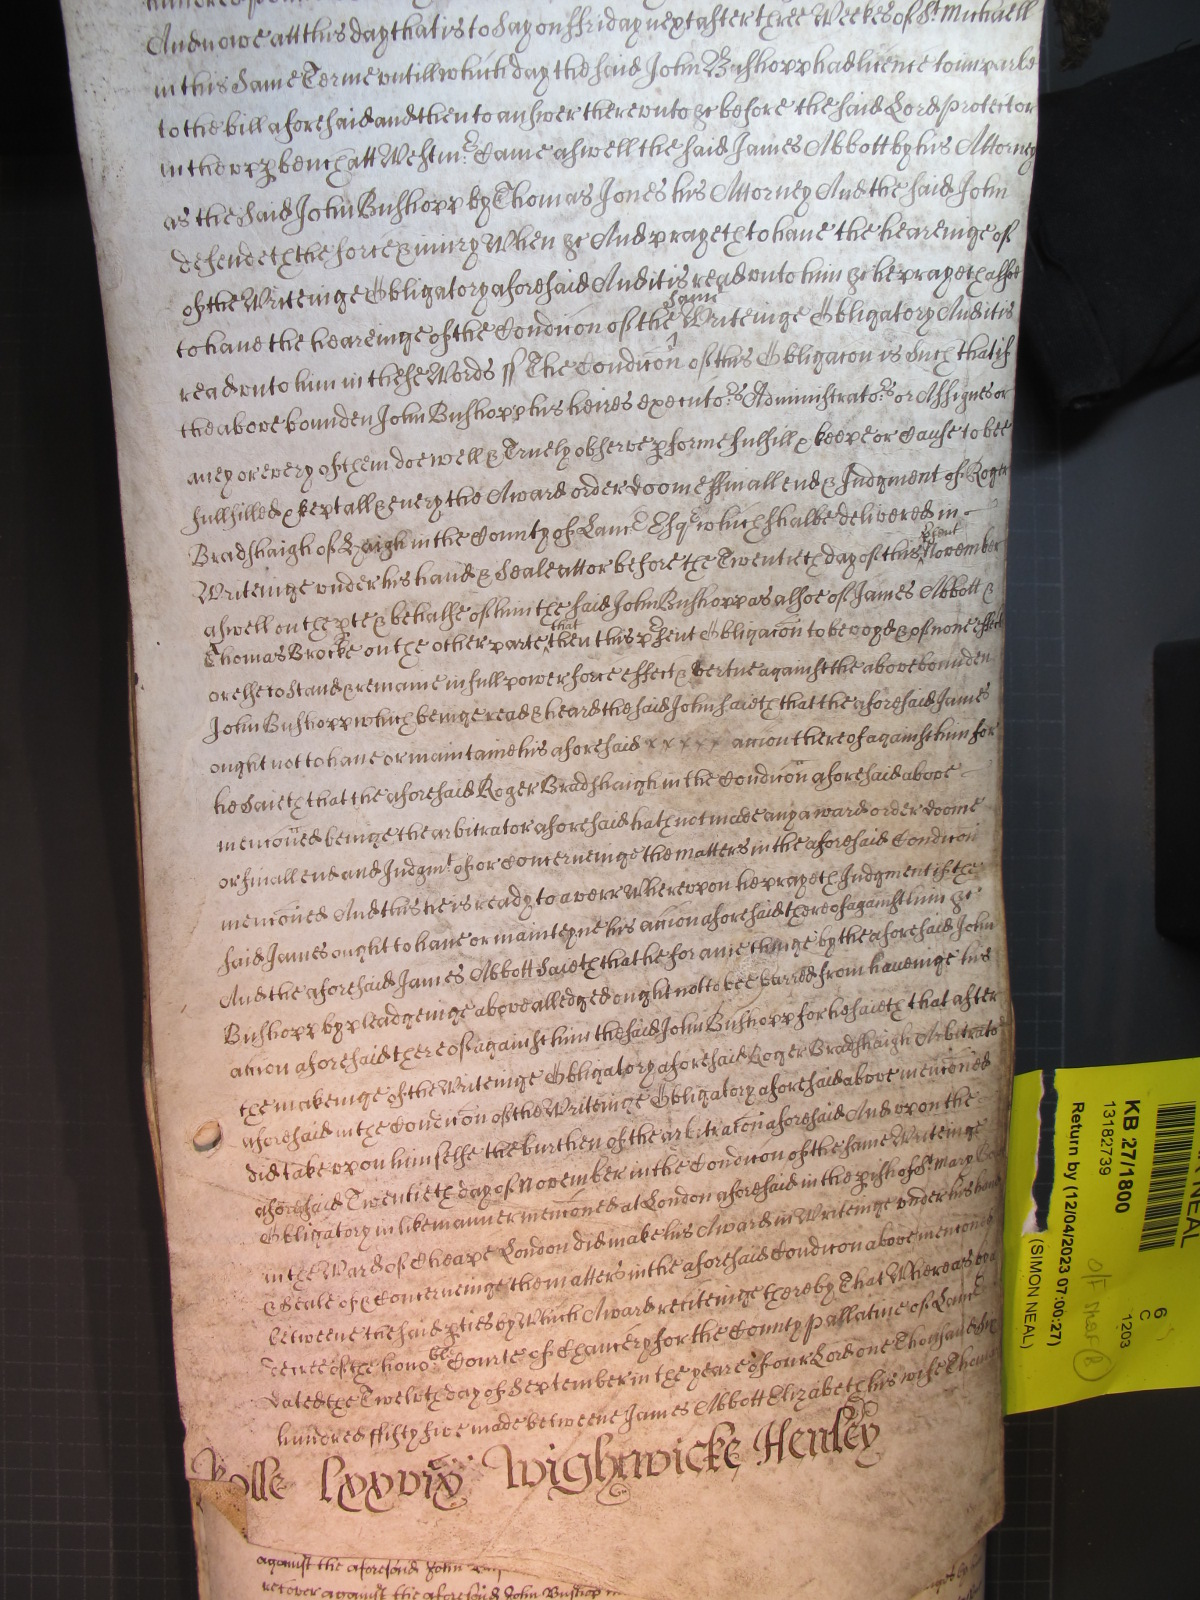 And nowe att this day that is to say on ffriday next after three Weekes of St. Michaell
in this Same Terme untill which day the said John Bushopp had licence to imparle
to the bill aforesaid and then to answer thereunto &c before the said Lord Protector
in the upp bench att Westmr. Came aswell the said James Abbott by his Attorney
as the said John Bushopp by Thomas Jones his Attorney And the said John
defendeth the force & iniury When &c And prayeth to haue the heareinge of
of the Writeinge Obligatory aforesaid And it is read unto him &c he prayeth alsoe
to haue the heareinge of the Condicon of the same Writeinge Obligatory And it is
read unto him in these Words ss The Condicon of this Obligacon is Such that if
the above bounden John Bushopp his heires executors Administrators or Assignes or
aney or every of them doe well & Truely observe pforme fulfill & keepe or Cause to bee
fullfilled & kept all & euery the Award order doome ffinall end & Judgment of Roger
Bradshaigh of Haigh in the County of Lanc Esqr which shalbe delivered in
Writeinge under his hand & Seale att or before the Twentieth day of this psent November
aswell on the pte & behalfe of him the said John Bushopp as alsoe of James Abbott &
Thomas Brocke on the other parte that then this psent Obligacon to be voyd & of none effect
or else to Stand & remaine in full power force effect & vertue against the above bounden
John Bushopp which beinge read & heard the said John saieth that the aforesaid James
ought not to haue or maintaine his aforesaid x x x x x accon thereof against him for
he Saieth that the aforesaid Roger Bradshaigh in the Condicon aforesaid above
menconed beinge the arbitrator aforesaid hath not made any award order doome
or finall end and Judgmt of or Concerneinge the matters in the aforesaid Condicon
menconed And this he is ready to averr Whereupon he prayeth Judgment if the
said James ought to haue or mainteyne his accon aforesaid thereof against him &c
And the aforesaid James Abbott Saieth that he for anie thinge by the aforesaid John
Bushopp by pleadgeinge above alledged ought not to bee barred from haueinge his
accon aforesaid thereof against him the said John Bushopp for he saieth that after
the makeinge of the Writeinge Obligatory aforesaid Roger Bradshaigh Arbitrator
aforesaid in the Condicon of the Writeinge Obligatory aforesaid above menconed
did take upon himselfe the burthen of the arbitracon aforesaid And upon the
aforesaid Twentieth day of November in the Condicon of the same Writeinge
Obligatory in like manner menconed at London aforesaid in the pish of St. Mary
in the Ward of Cheape London did make his Award in Writeinge under his hand
& Seale of & Concerneinge the matters in the aforesaid Condicon above menconed
betweene the said pties by Which Award reciteinge thereby That Whereas by a
decree of the honoble Courte of Chancery for the County Pallatine of Lanc
dated the Twelveth day of September in the yeare of our Lord one Thousand Six
hundred fifty five made betweene James Abbott Elizabeth his wife Thomas
Rolle lxxviij Wightwicke Henley
against the aforesaid John
recover against the aforesaid John Bushop
KB 27/1800
13182739
Return by (12/04/2023 07:00:27)
(SIMON NEAL)
6
C
1203
NEAL